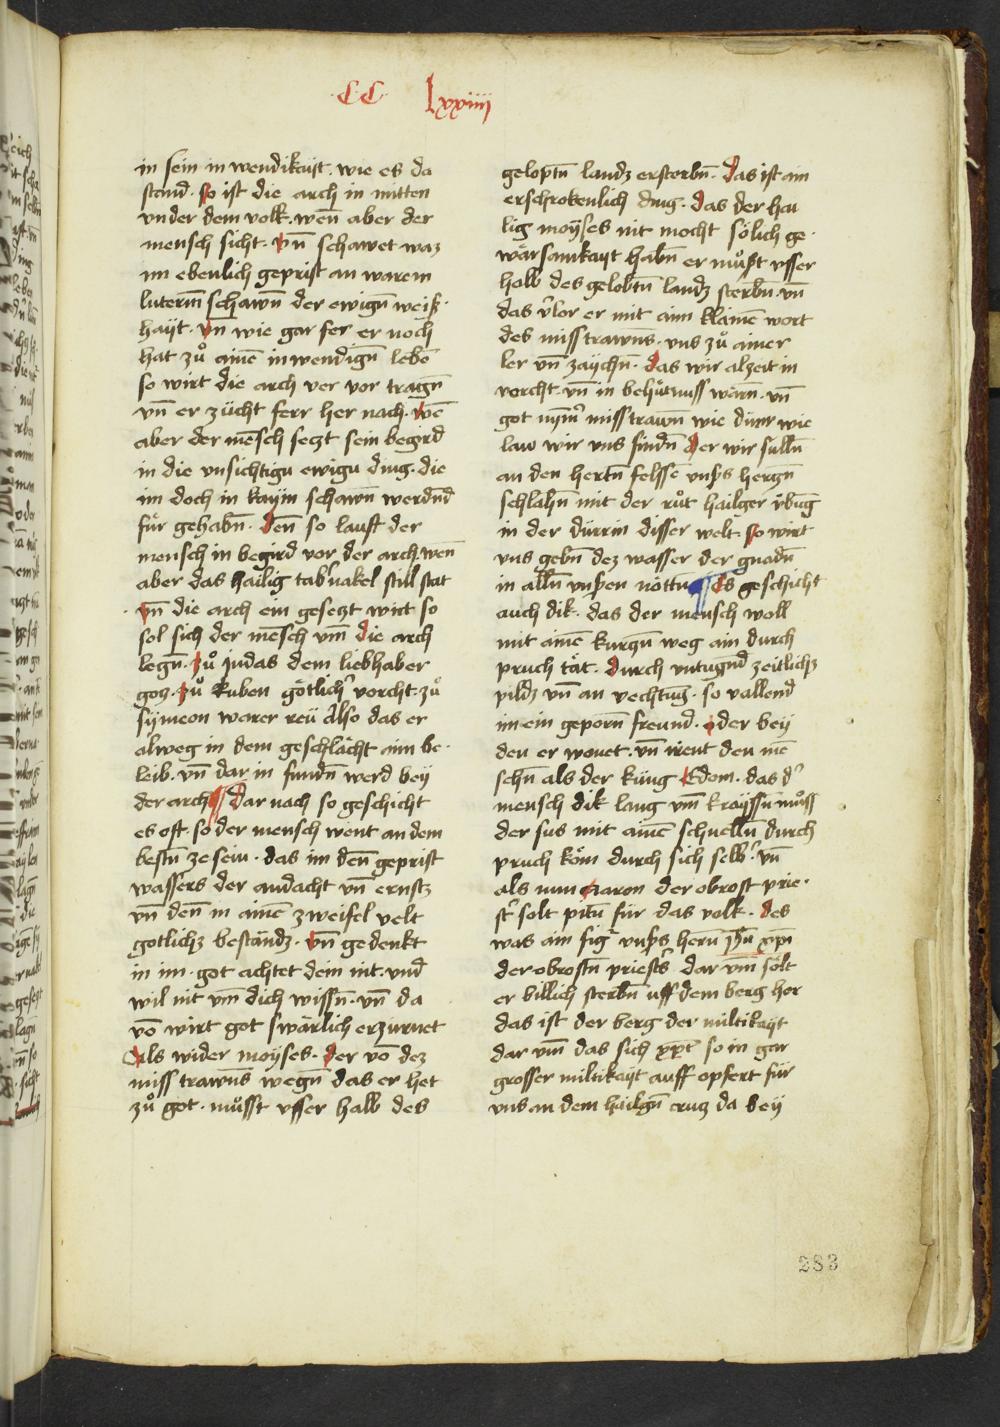 CC Lxxiiii
in sein in wendikait. wie es da
stand. so ist die arch in mitten
vnder dem volk. wen̄ aber der
mensch sicht. vn̄ schawet waz
im ebenlich geprist an warem
luterm̄ schawn̄ der ewign̄ weiß
hayt. vn̄ wie gar fer er noch
hat zů ainē inwendign̄ lebē
so wirt die arch ver vor tragn̄
vn̄ er zücht ferr her nach. wē
aber der mēsch seczt sein begird
in die vnsichtigu ewigu ding. die
im doch in kayim schawn̄ werdn̄d
für gehabn̄. den̄ so laust der
mensch in begird vor der arch. wen̄
aber das hailig tabˀnakel still stat
vn̄ die arch ein gesetzt wirt so
sol sich der mēsch vm̄ die arch
legn̄. zů judas dem liebhaber
gotz. zů Ruben götlichˀ vorcht. zů
symeon warer reü Also das er
alweg in dem geschlächt aim be
leib. vn̄ dar in fundn̄ werd bey
der arch ¶ Dar nach so geschicht
es oft. so der mensch went an dem
bestn̄ ze sein. das im den̄ geprist
wassers der andacht vn̄ ernstz
vn̄ den̄ in ainē zweifel velt
gotlichz beständz. vn̄ gedenkt
in im. got achtet dein nit. vnd
wil nit vm̄ dich wissn̄. vn̄ da
vō wirt got swärlich erzurnet
Als wider moyses. der vō dez
miss trawn̄s wegn̄ das er het
zů got. můsst vsser halb des
geloptn̄ landz ersterbn̄. das ist ain
erschrokenlich ding. das der hai
lig moyses nit mocht sölich ge
wärsamkayt habn̄ er můst vsser
halb des gelobtn̄ landz sterbn̄. vn̄
das v̓lor er mit aim klainē wort
des miss trawn̄s. vns zů ainer
ler vn̄ zaychn̄. das wir alzeit in
vorcht. vn̄ in behütnuss wärn̄. vn̄
got nym̄ˀ miss trawn̄ wie dürr wie
law wir vns findn̄ der wir sülln̄
an den hertn̄ felsse vnsˀs hertzn̄
schlahn̄ mit der růt hailger v̈bu̅g
in der dürrin disser welt. so wirt
vns gebn̄ dez wasser der gnadn̄
in alln̄ vnsˀen nöttn̄ ¶ Es geschicht
auch dik. das der mensch woll
mit ainē kurtzn̄ weg ain durch
pruch tät. durch vntugn̄d zeitlichz
pildz vn̄ an vechtu̅g. so vallend
im ein geporn̄ freund. oder bey
den er wonet. vn̄ irrent den mē
schn̄ als der küng Edom. das dˀ
mensch dik lang vm̄ krayssn̄ můss
der sus mit ainē schnelln̄ durch
pruch köm durch sich selbˀ. vn̄
als nun aaron der obrost prie
stˀ solt pittn̄ für das volk. des
was ain figˀ vnsˀs herrn̄ jhū xp̄i
der obrostn̄ priestˀs dar vm̄ solt
er billich sterbn̄ uff dem berg hor
das ist der berg der miltikayt
dar vm̄ das sich xp̄c so in gar
grosser miltikayt auff opfert für
vns an dem hailgn̄ crutz da bey
283